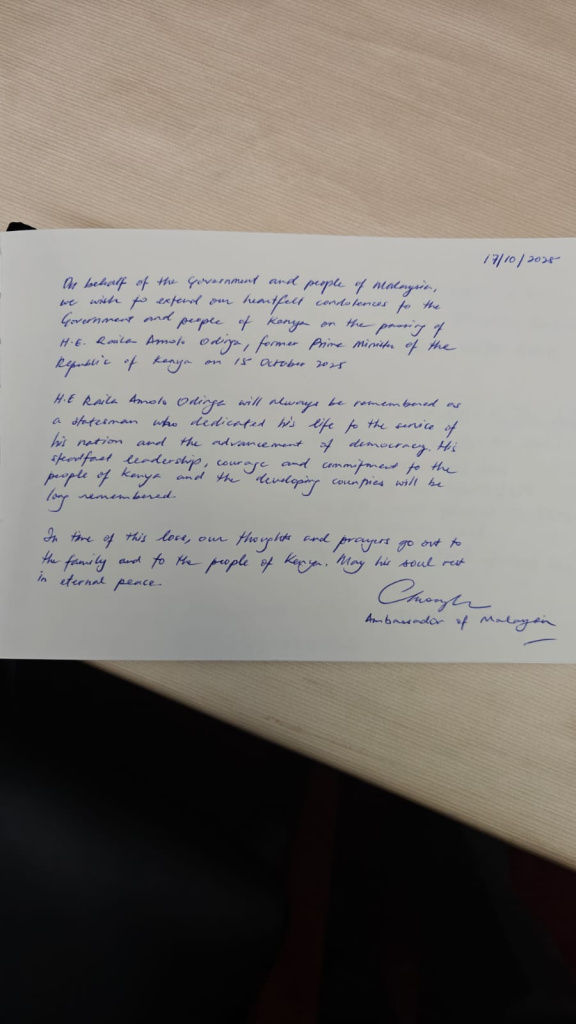 17/10/2025
On behalf of the Government and people of Malaysia,
we wish to extend our heartfelt condolences to the
Government and people of Kenya on the passing of
H.E. Raila Amolo Odinga, former Prime Minister of the
Republic of Kenya on 15 October 2025
H.E Raila Amolo Odinga will always be remembered as
a statesman who dedicated his life to the service of
his nation and the advancement of democracy. His
steadfast leadership, courage and commitment to the
people of Kenya and the developing countries will be
long remembered.
In time of this loss, our thoughts and prayers go out to
the family and to the people of Kenya. May his soul rest
in eternal peace.
Ambassador of Malaysia